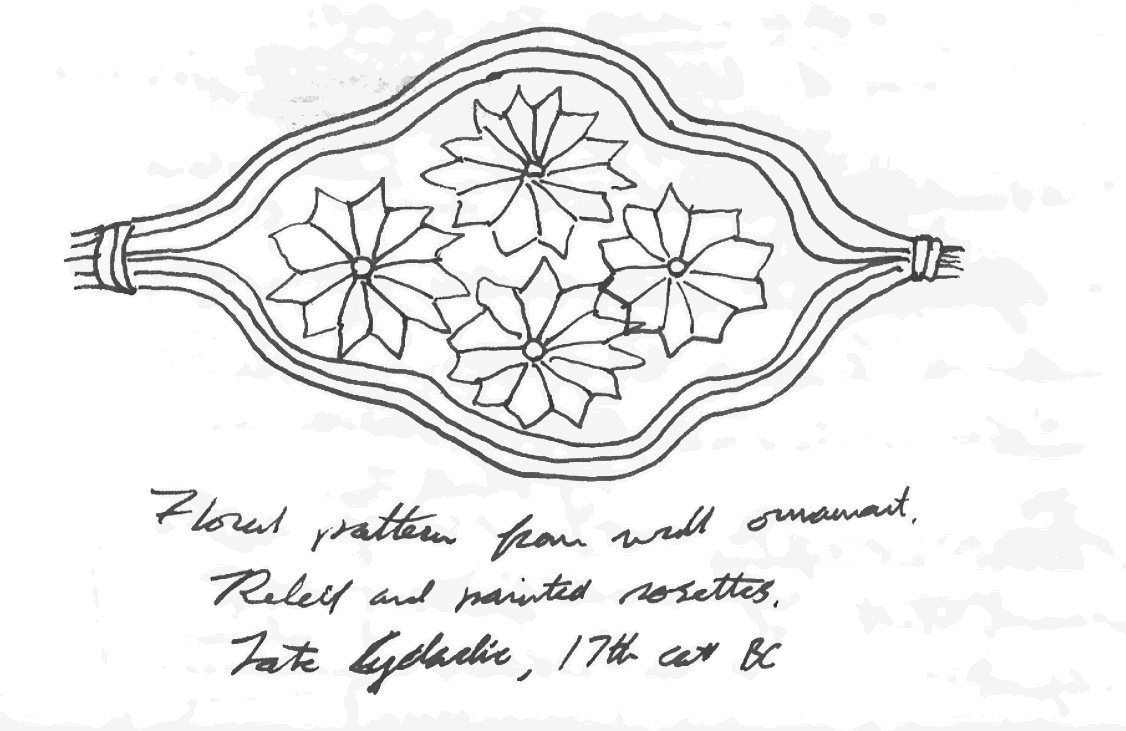 Floral pattern from wall ornament.
Releif and painted rosettes.
Late Cycladic, 17th cent BC